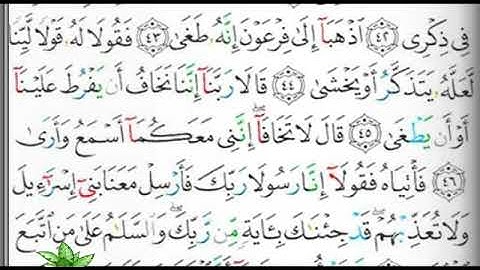 فِى ذِكْرِى ﴿٤٢﴾ ٱذْهَبَآ إِلَىٰ فِرْعَوْنَ إِنَّهُۥ طَغَىٰ ﴿٤٣﴾ فَقُولَا لَهُۥ قَوْلًا لَّيِّنًا
لَّعَلَّهُۥ يَتَذَكَّرُ أَوْ يَخْشَىٰ ﴿٤٤﴾ قَالَا رَبَّنَآ إِنَّنَا نَخَافُ أَن يَفْرُطَ عَلَيْنَآ
أَوْ أَن يَطْغَىٰ ﴿٤٥﴾ قَالَ لَا تَخَافَآ ۖ إِنَّنِى مَعَكُمَآ أَسْمَعُ وَأَرَىٰ
﴿٤٦﴾ فَأْتِيَاهُ فَقُولَآ إِنَّا رَسُولَا رَبِّكَ فَأَرْسِلْ مَعَنَا بَنِىٓ إِسْرَٰٓءِيلَ
وَلَا تُعَذِّبْهُمْ ۖ قَدْ جِئْنَٰكَ بِـَٔايَةٍ مِّن رَّبِّكَ ۖ وَٱلسَّلَٰمُ عَلَىٰ مَنِ ٱتَّبَعَ